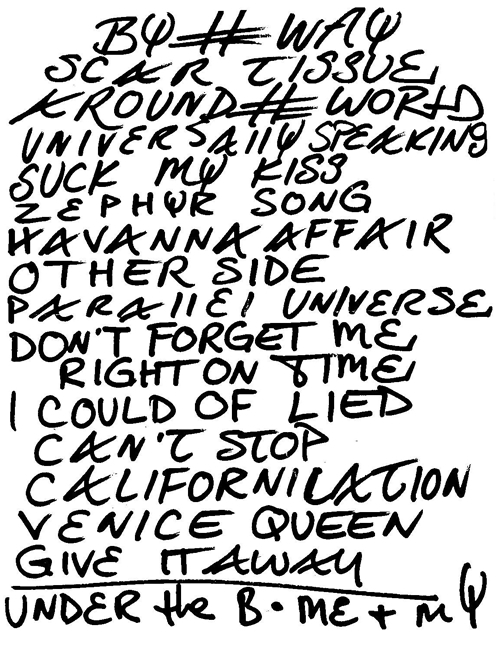 BY # WAY
SCAR TISSUE
AROUND # WORLD
UNIVERSAllY SPEAKING
SUCK MY KISS
ZEPHYR SONG
HAVANNA AFFAIR
OTHER SIDE
PARAllEl UNIVERSE
DON'T FORGET ME
RIGHT ON TIME
I COULD OF LIED
CAN'T STOP
CALIFORNICATION
VENICE QUEEN
GIVE IT AWAY
UNDER the B • ME + MY